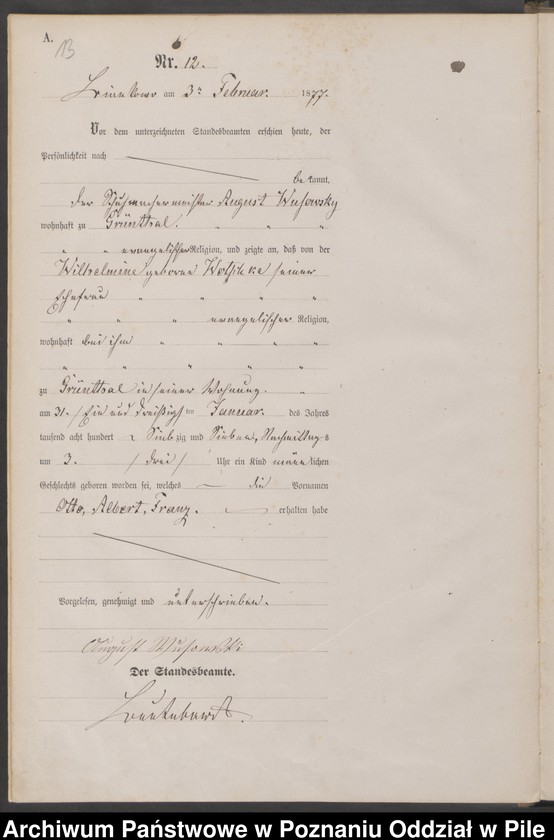 A.
13
Nr. 12.
am 3ten Februar 1877.
Vor dem unterzeichneten Standesbeamten erschien heute, der
Persönlichkeit nach
bekannt,
der Schuhmachermeister August
wohnhaft zu Grünthal.
evangelischer Religion, und zeigte an, daß von der
Wilhelmine geborne seiner
Ehefrau
evangelischer Religion,
wohnhaft bei ihm
zu Grünthal in seiner Wohnung.
am 31. /Ein und dreißigsten Januar des Jahres
tausend acht hundert siebzig und sieben, Nachmittags
um 3. /drei/ Uhr ein Kind männlichen
Geschlechts geboren worden sei, welches die Vornamen
Otto, Albert, Franz. erhalten habe
Vorgelesen, genehmigt und unterschrieben.
August
Der Standesbeamte.
Archiwum Państwowe w Poznaniu Oddział w Pile